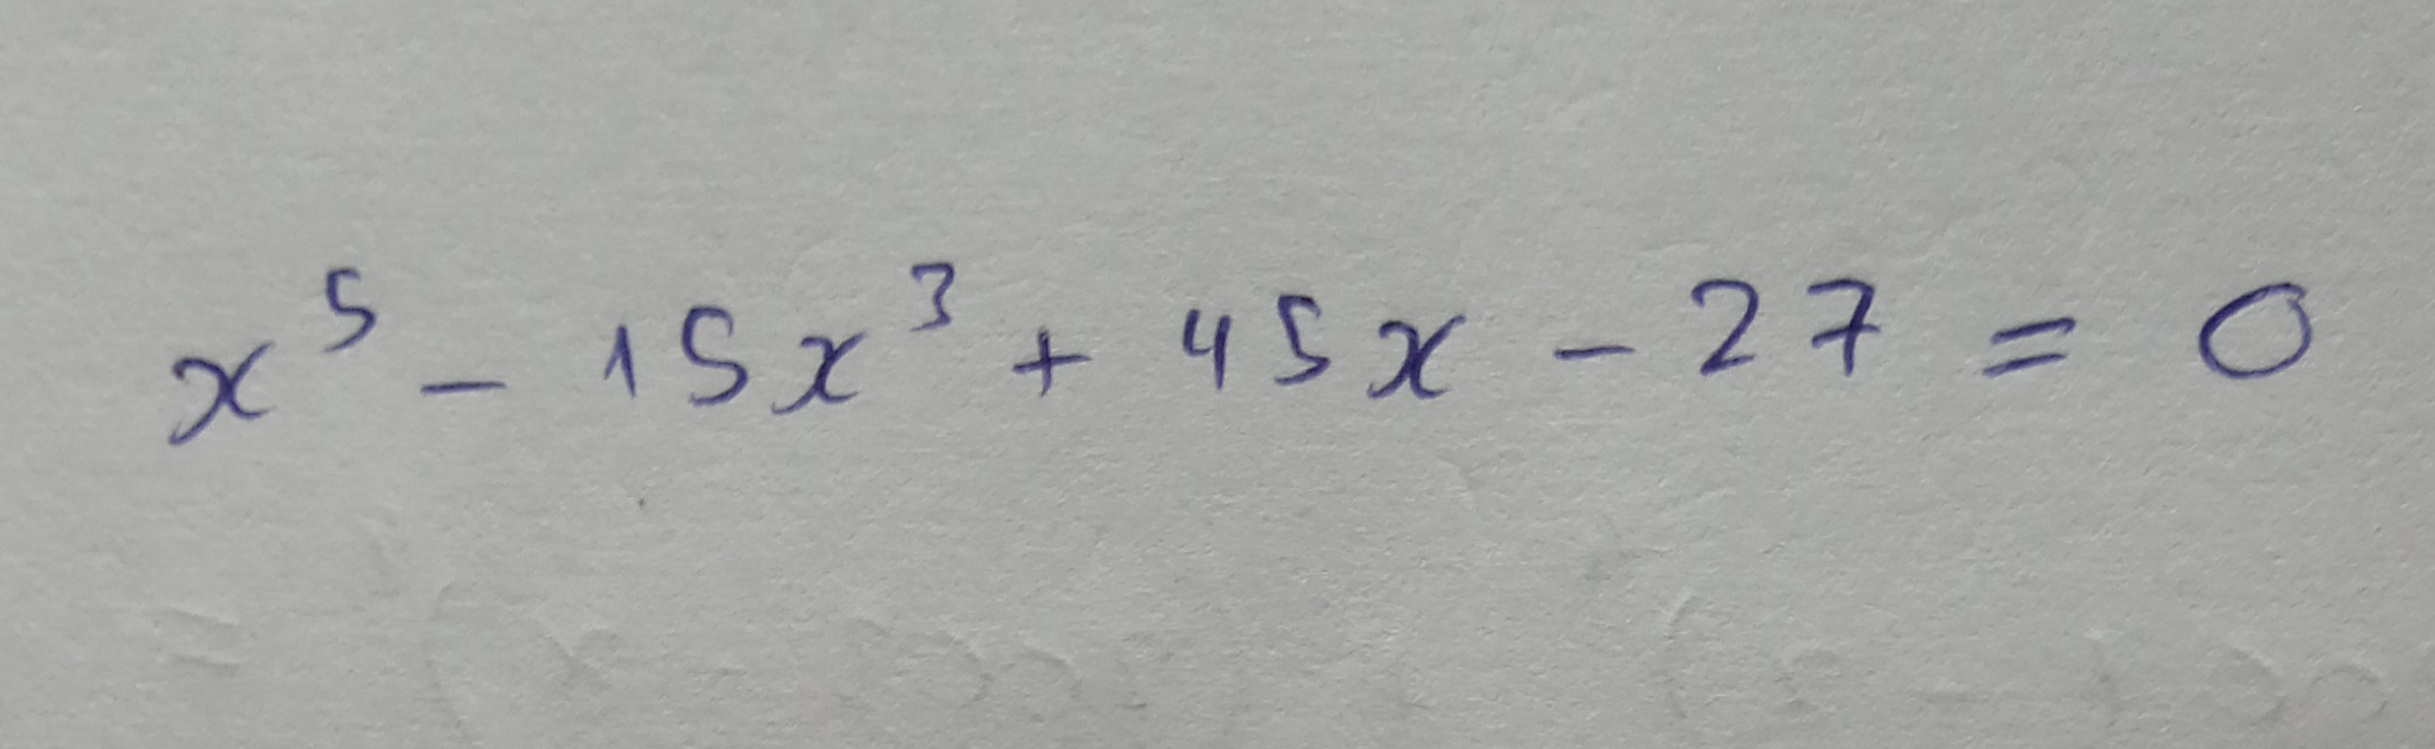 x⁵ - 15x³ + 45x - 27 = 0